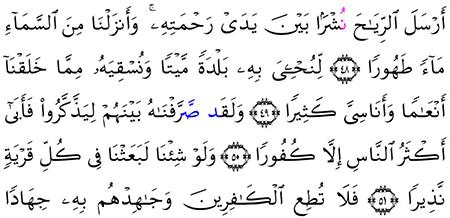 أَرْسَلَ ٱلرِّيَـٰحَ نُشْرَۢا بَيْنَ يَدَىْ رَحْمَتِهِۦۚ وَأَنزَلْنَا مِنَ ٱلسَّمَآءِ
مَآءً طَهُورًا ﴿٤٨﴾ لِّنُحْـِۧىَ بِهِۦ بَلْدَةً مَّيْتًا وَنُسْقِيَهُۥ مِمَّا خَلَقْنَآ
أَنْعَـٰمًا وَأَنَاسِىَّ كَثِيرًا ﴿٤٩﴾ وَلَقَد صَّرَّفْنَـٰهُ بَيْنَهُمْ لِيَذَّكَّرُوا۟ فَأَبَىٰٓ
أَكْثَرُ ٱلنَّاسِ إِلَّا كُفُورًا ﴿٥٠﴾ وَلَوْ شِئْنَا لَبَعَثْنَا فِى كُلِّ قَرْيَةٍ
نَّذِيرًا ﴿٥١﴾ فَلَا تُطِعِ ٱلْكَـٰفِرِينَ وَجَـٰهِدْهُم بِهِۦ جِهَادًا